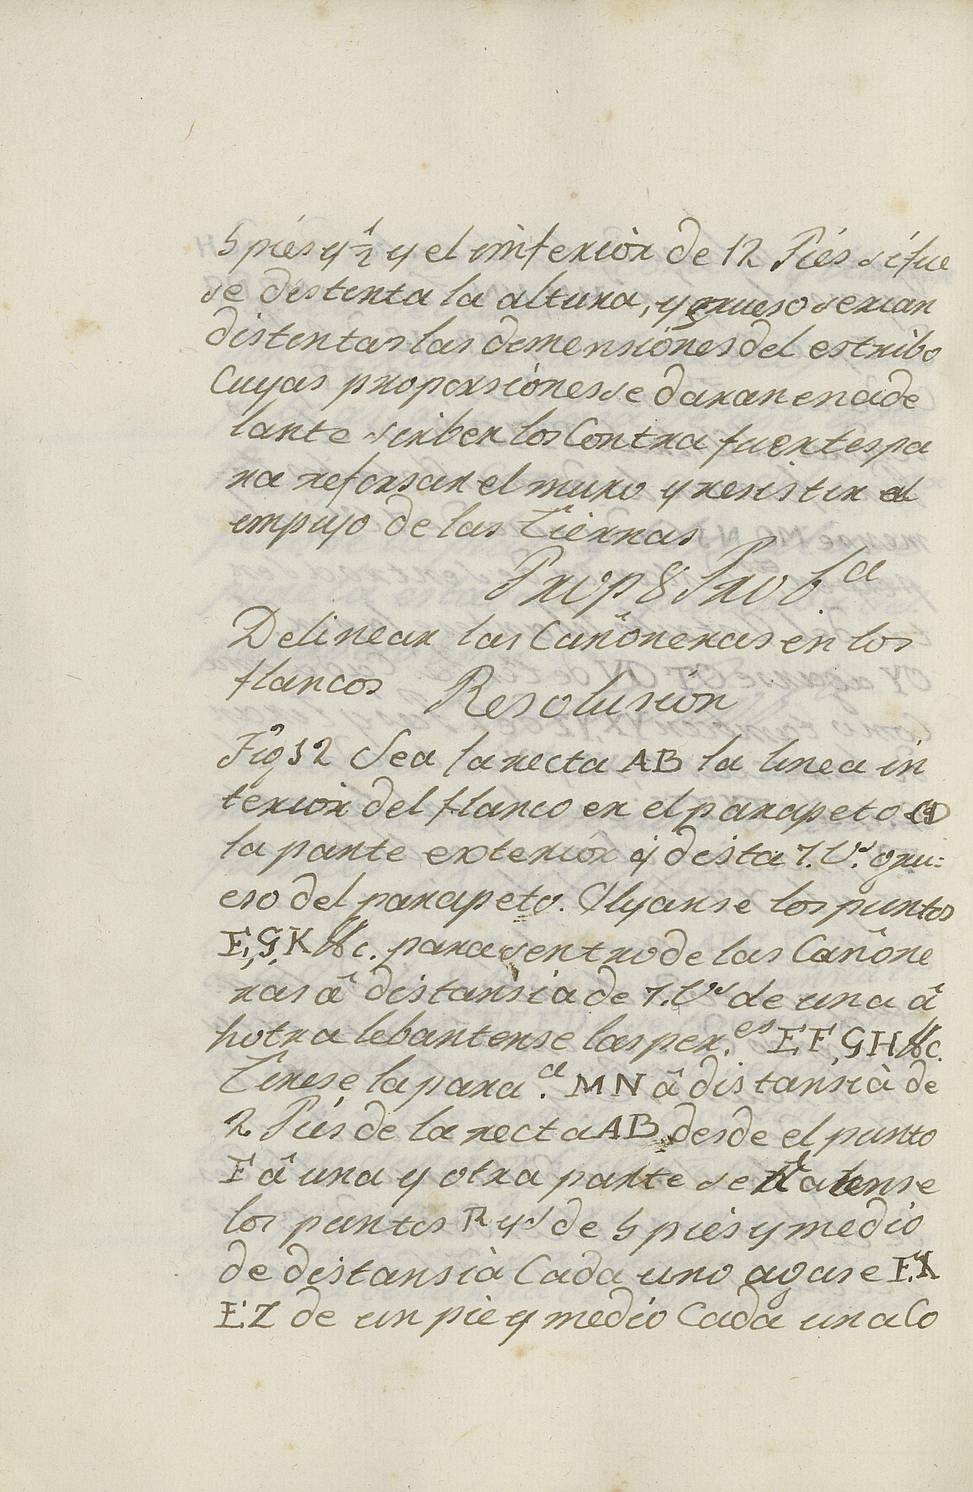 5 pies y ½ y el imterior de 12 Pies si fue
se distinta la altura, y grueso serian
distintas las dimensiones del estribo
Cuyas proporsiones se daran en ade
lante sirben los Contra fuertes pa
ra reforsar el muro y resistir el
empujo de las tierras
Prop 8 Prob.a
Delinear las Cañoneras en los
flancos Resolusion
Fig 32 Sea la recta AB la linea in
terior del flanco en el parapeto CD
la parte exterior y dista 7. Vs. gru=
eso del parapeto. Elijanse los puntos
F, G, K &c. para sentro de las Cañone
ras â distansia de 7. Vs de una â
hotra lebantense las per.es EF, GH &c.
Tirese la para.a MN â distansià de
2 Pies de la recta AB desde el punto
F â una y otra parte se
los puntos R y S de 5 pies y medio
de distansià Cada uno agase EX
EZ de un pie y medio Cada una Co